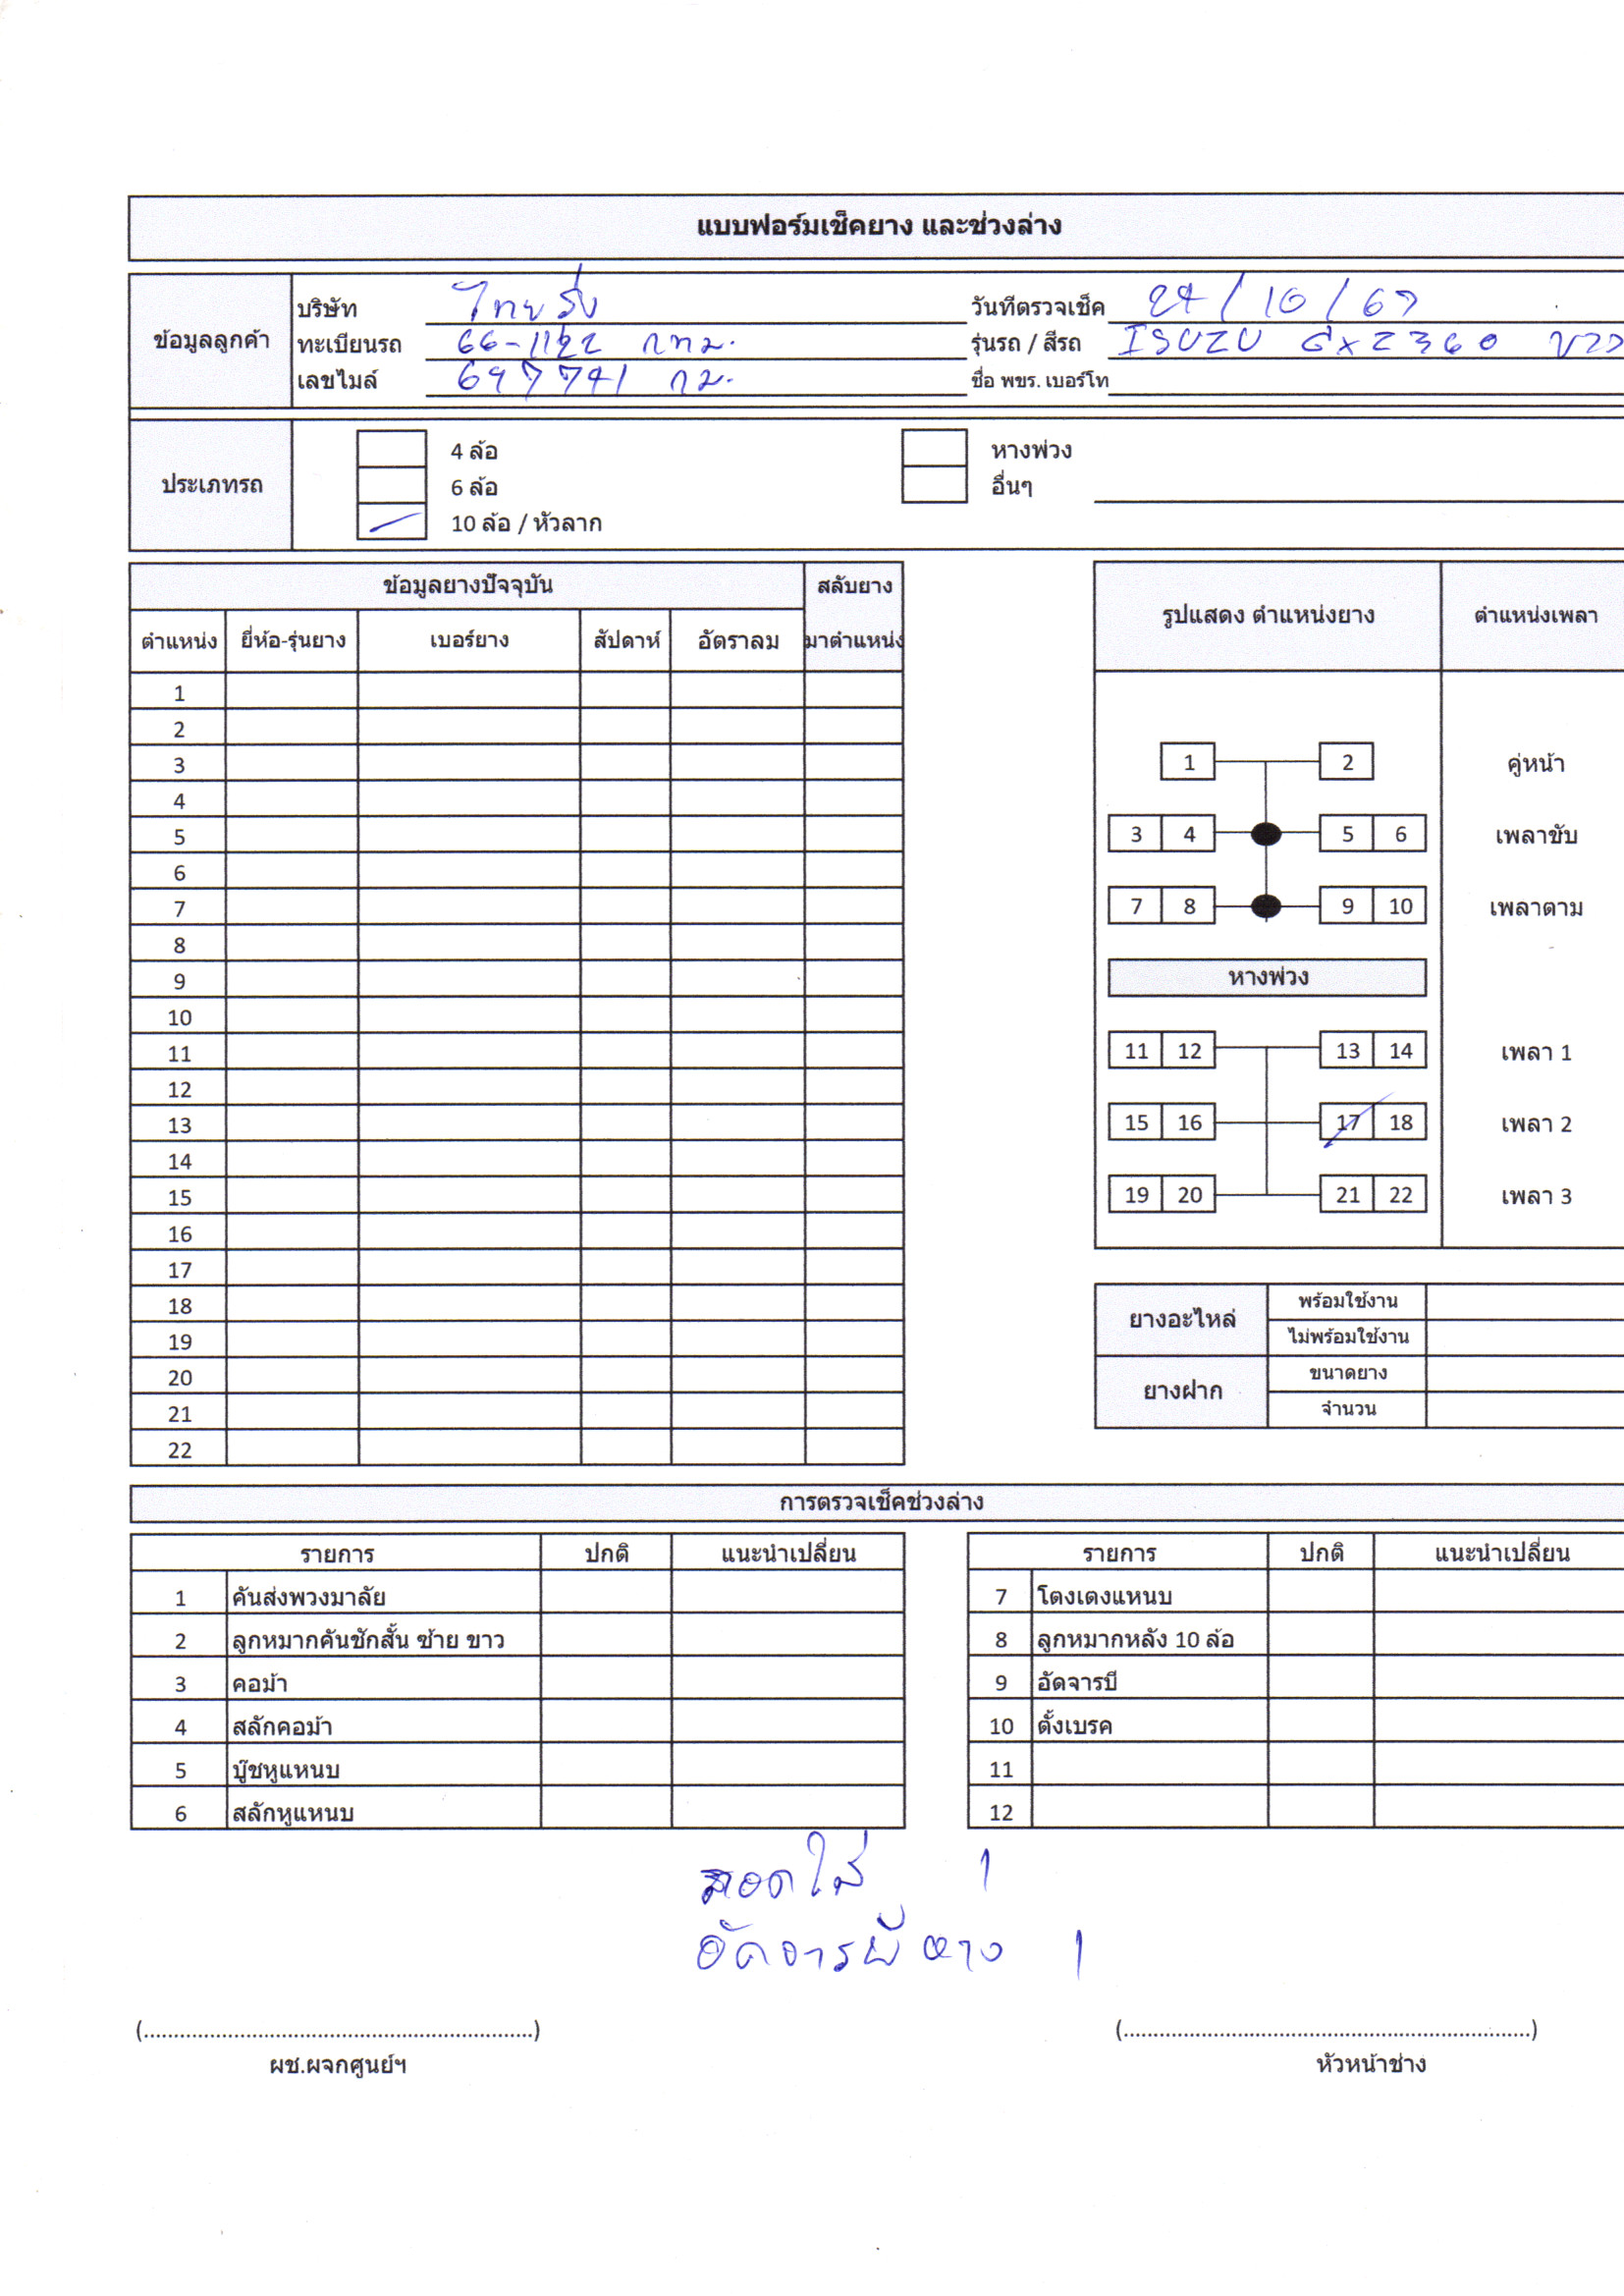 แบบฟอร์มเช็คยาง และช่วงล่าง
ข้อมูลลูกค้า
บริษัท ไทยรุ่ง วันที่ตรวจเช็ค 24/10/67
ทะเบียนรถ 66-1122 กทม. รุ่นรถ / สีรถ ISUZU GXZ 360 ขาว
เลขไมล์ 697741 กม. ชื่อ พขร. เบอร์โท
ประเภทรถ
4 ล้อ หางพ่วง
6 ล้อ อื่นๆ
10 ล้อ / หัวลาก
ข้อมูลยางปัจจุบัน สลับยาง
ตำแหน่ง ยี่ห้อ-รุ่นยาง เบอร์ยาง สัปดาห์ อัตราลม มาตำแหน่ง
1
2
3
4
5
6
7
8
9
10
11
12
13
14
15
16
17
18
19
20
21
22
รูปแสดง ตำแหน่งยาง ตำแหน่งเพลา
1 2 คู่หน้า
3 4 5 6 เพลาขับ
7 8 9 10 เพลาตาม
หางพ่วง
11 12 13 14 เพลา 1
15 16 17 18 เพลา 2
19 20 21 22 เพลา 3
ยางอะไหล่ พร้อมใช้งาน
ไม่พร้อมใช้งาน
ยางฝาก ขนาดยาง
จำนวน
การตรวจเช็คช่วงล่าง
รายการ ปกติ แนะนำเปลี่ยน
1 คันส่งพวงมาลัย
2 ลูกหมากคันชักสั้น ซ้าย ขาว
3 คอม้า
4 สลักคอม้า
5 บู๊ชหูแหนบ
6 สลักหูแหนบ
รายการ ปกติ แนะนำเปลี่ยน
7 โตงเตงแหนบ
8 ลูกหมากหลัง 10 ล้อ
9 อัดจารบี
10 ตั้งเบรค
11
12
ถอดใส่ 1
อัดจารบีหาง 1
(..................................................) (..................................................)
ผช.ผจกศูนย์ฯ หัวหน้าช่าง